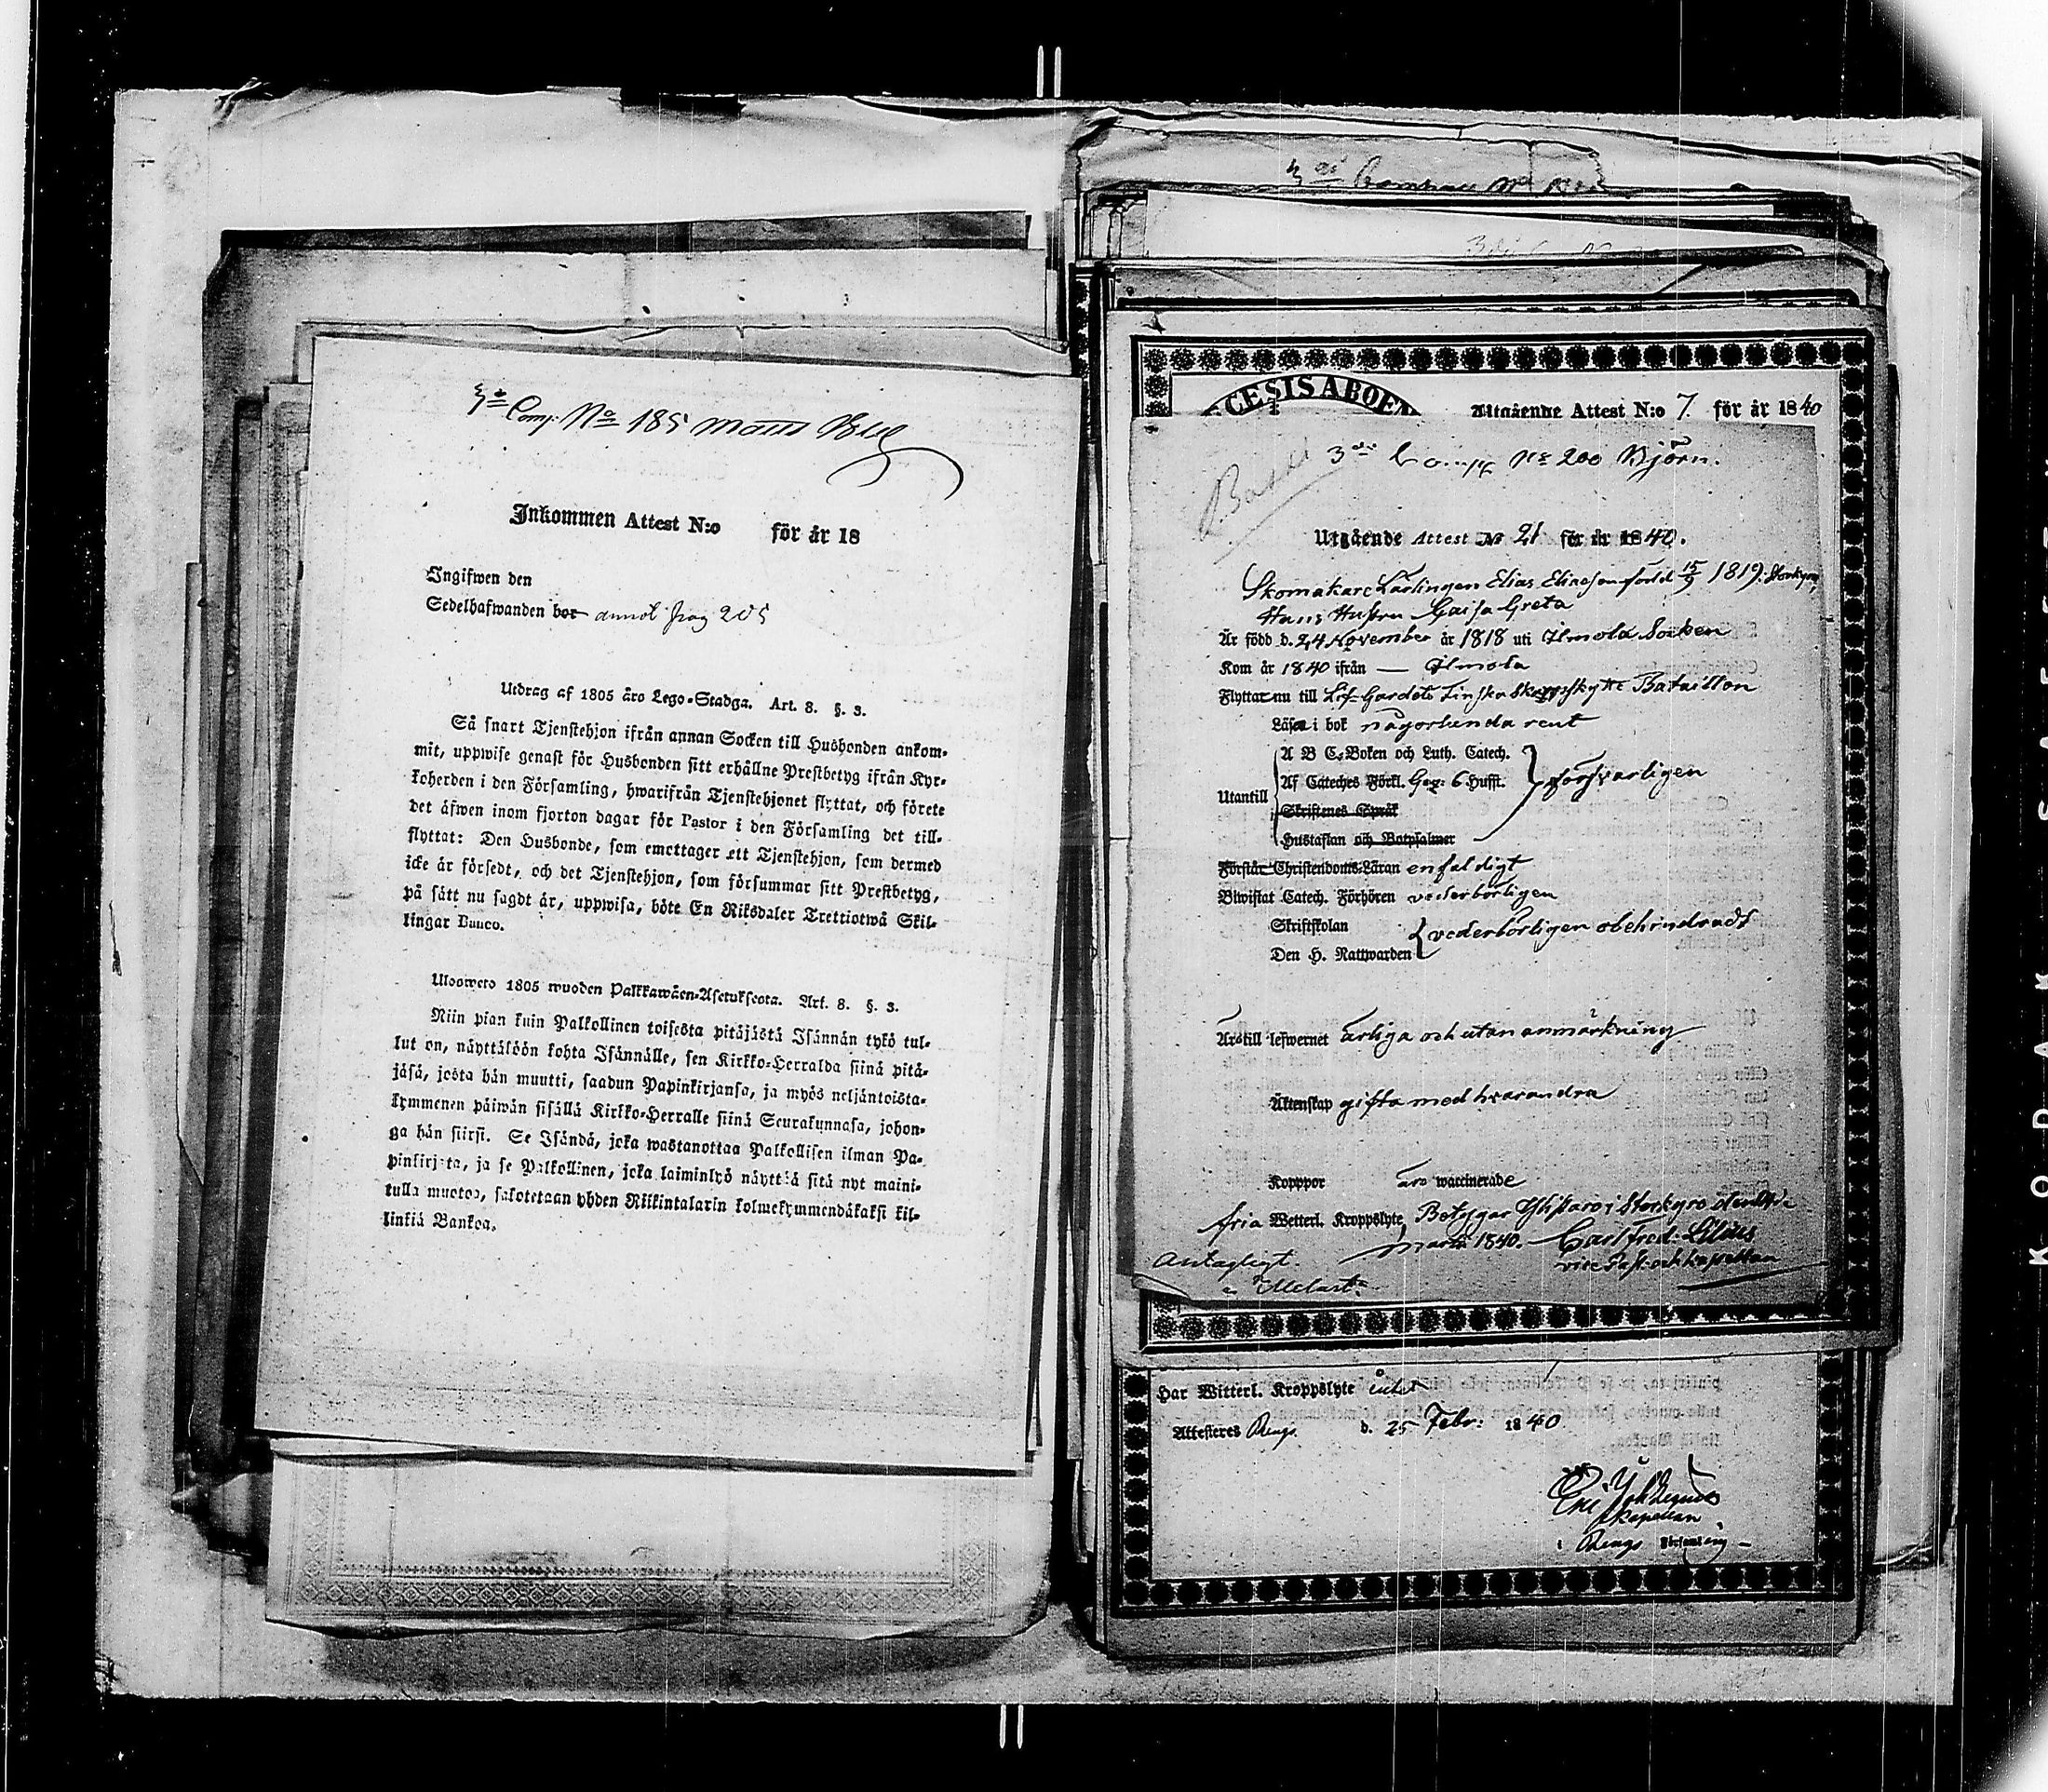 3de Comp: No 185 Matts
Inkommen Attest N:o för år 18
Ingifwen den
Sedelhafwanden bor annot. pag 205
Utdrag af 1805 års Lego-Stadga. Art. 8. §. 3.
Så snart Tjenstehjon ifrån annan Socken till Husbonden ankom-
mit, uppwise genast för Husbonden sitt erhållne Prestbetyg ifrån Kyr-
koherden i den Församling, hwarifrån Tjenstehjonet flyttat, och förete
det äfwen inom fjorton dagar för Pastor i den Församling det till-
flyttat: Den Husbonde, som emottager ett Tjenstehjon, som dermed
icke är försedt, och det Tjenstehjon, som försummar sitt Prestbetyg,
på sätt nu sagdt är, uppwisa, böte En Riksdaler Trettiotwå Skil-
lingar Banco.
Ulosweto 1805 wuoden Palkkawäen-Asetuksesta. Art. 8. §. 3.
Niin pian kuin Palkollinen toisesta pitäjästä Isännän tykö tul-
lut on, näyttäköön kohta Isännälle, sen Kirkko-Herralda siinä pitä-
jäsä, josta hän muutti, saadun Papinkirjansa, ja myös neljäntoista-
kymmenen päiwän sisällä Kirkko-Herralle siinä Seurakunnasa, johon-
ga hän siirsi. Se Isändä, joka wastanottaa Palkollisen ilman Pa-
pinkirjata, ja se Palkollinen, joka laiminlyö näyttää sitä nyt maini-
tulla muotoa, sakotetaan yhden Riikintalarin kolmekymmendäkaksi kil-
linkiä Bankoa.
CESIS ABOEN
Utgående Attest N:o 7. för år 1840
3die Comp No 200 Björn.
Utgående Attest No 21 för år 1840.
Skomakare Lärlingen Elias Eliasson född 15/9 1819. Storkyro,
Hans Hustru Caisa Greta
Är född d. 24 November år 1818 uti Ilmola Socken
Kom år 1840 ifrån — Ilmola
Flyttar nu till Lif-Gardets Finska Skarpskytte Bataillon
Läsa i bok någorlunda rent
A B C-Boken och Luth. Catech.
Af Cateches Förkl. Gez: 6 Hufst.
Utantill försvarligen
Skriftenes Språk
Hustaflan och Botpsalmer
Förstår Christendoms-Läran enfaldigt
Biwistat Catech. Förhören vederbörligen
Skriftskolan
vederbörligen obehindradt
Den H. Nattwarden
Äro till lefwernet ärliga och utan anmärkning
Äktenskap gifta med hvarandra
Kopppor äro waccinerade
fria Wetterl. Kroppslyte, Betygar Ylistaro i Storkyro den
Martii 1840. Carl Fred: Lilius
vice Past. och kapellan
Antagligt.
Har Witterl. Kroppslyte intet
Attesteres Rengo d. 25 Febr: 1840
Kapellan
i Rengo Församling
KODAK SAFETY